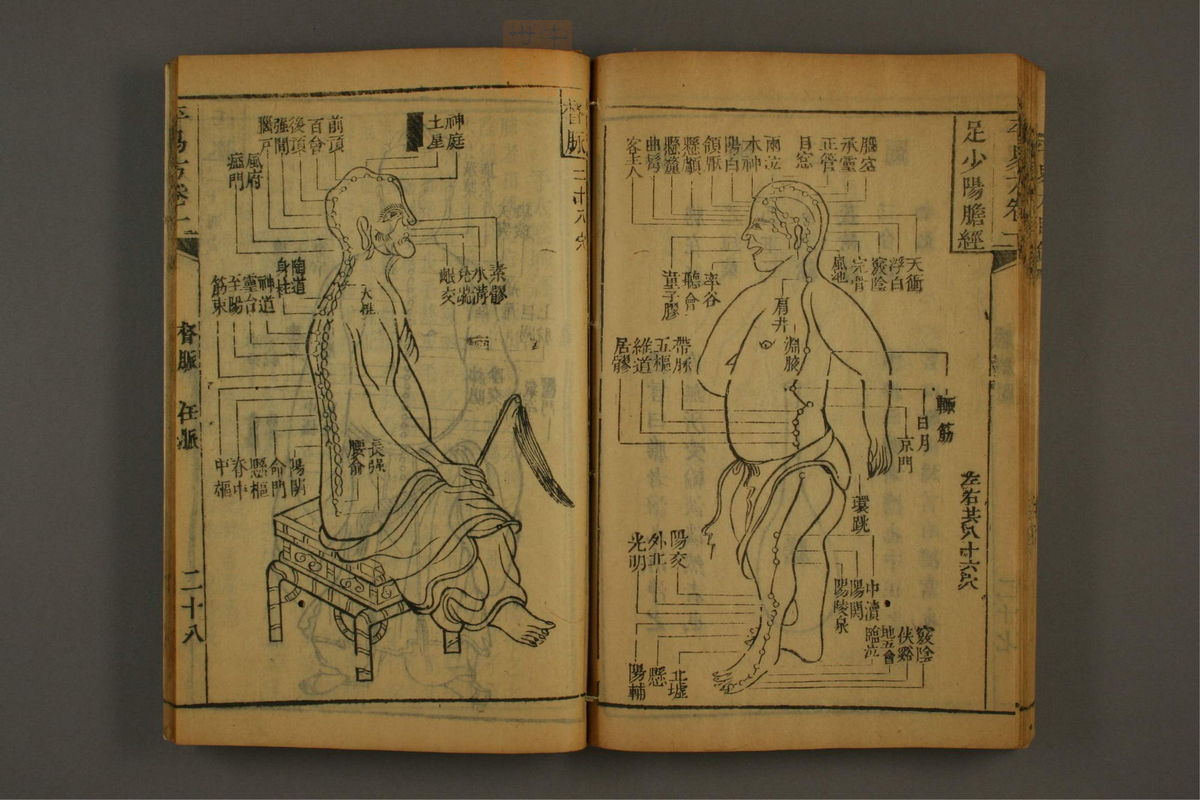 足少陽膽經
腦空
承靈
正營
目窓
兩泣
本神
陽白
頷厭
懸顱
懸釐
曲鬢
客主人
天衝
浮白
竅陰
完骨
風池
率谷
聽會
童子髎
肩井
淵腋
帶脉
五樞
維道
居髎
輒筋
日月
京門
環跳
左右共八十六穴
中瀆
陽関
陽陵泉
陽交
外丘
光明
竅陰
侠谿
地五會
臨泣
丘墟
懸
陽輔
督脈
神庭
土星
前頂
百會
後頂
强間
腦戸
風府
瘂門
素髎
水溝
兌端
齦交
陶道
身柱
神道
靈台
至陽
筋束
大椎
長强
腰俞
陽関
命門
懸樞
脊中
中樞
督脈 任脈
二十八